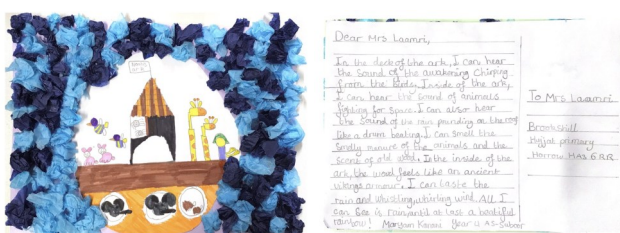 Dear Mrs Laamri,
In the deck of the ark, I can hear
the sound of the awakening chirping
from the birds. Inside of the ark,
I can hear the sound of animals
fighting for space. I can also hear
the sound of the rain pounding on the roof
like a drum beating. I can smell the
smelly manure of the animals and the
scent of old wood. In the inside of the
ark, the wood feels like an ancient
vikings armour. I can taste the
rain and whistling, whirling wind. All I
can see is rain, until at last a beatiful
rainbow! Maryam Year 4 As-Suboor
To Mrs Laamri
Brookshill
Hujjat primary
Harrow, HA3 6RR